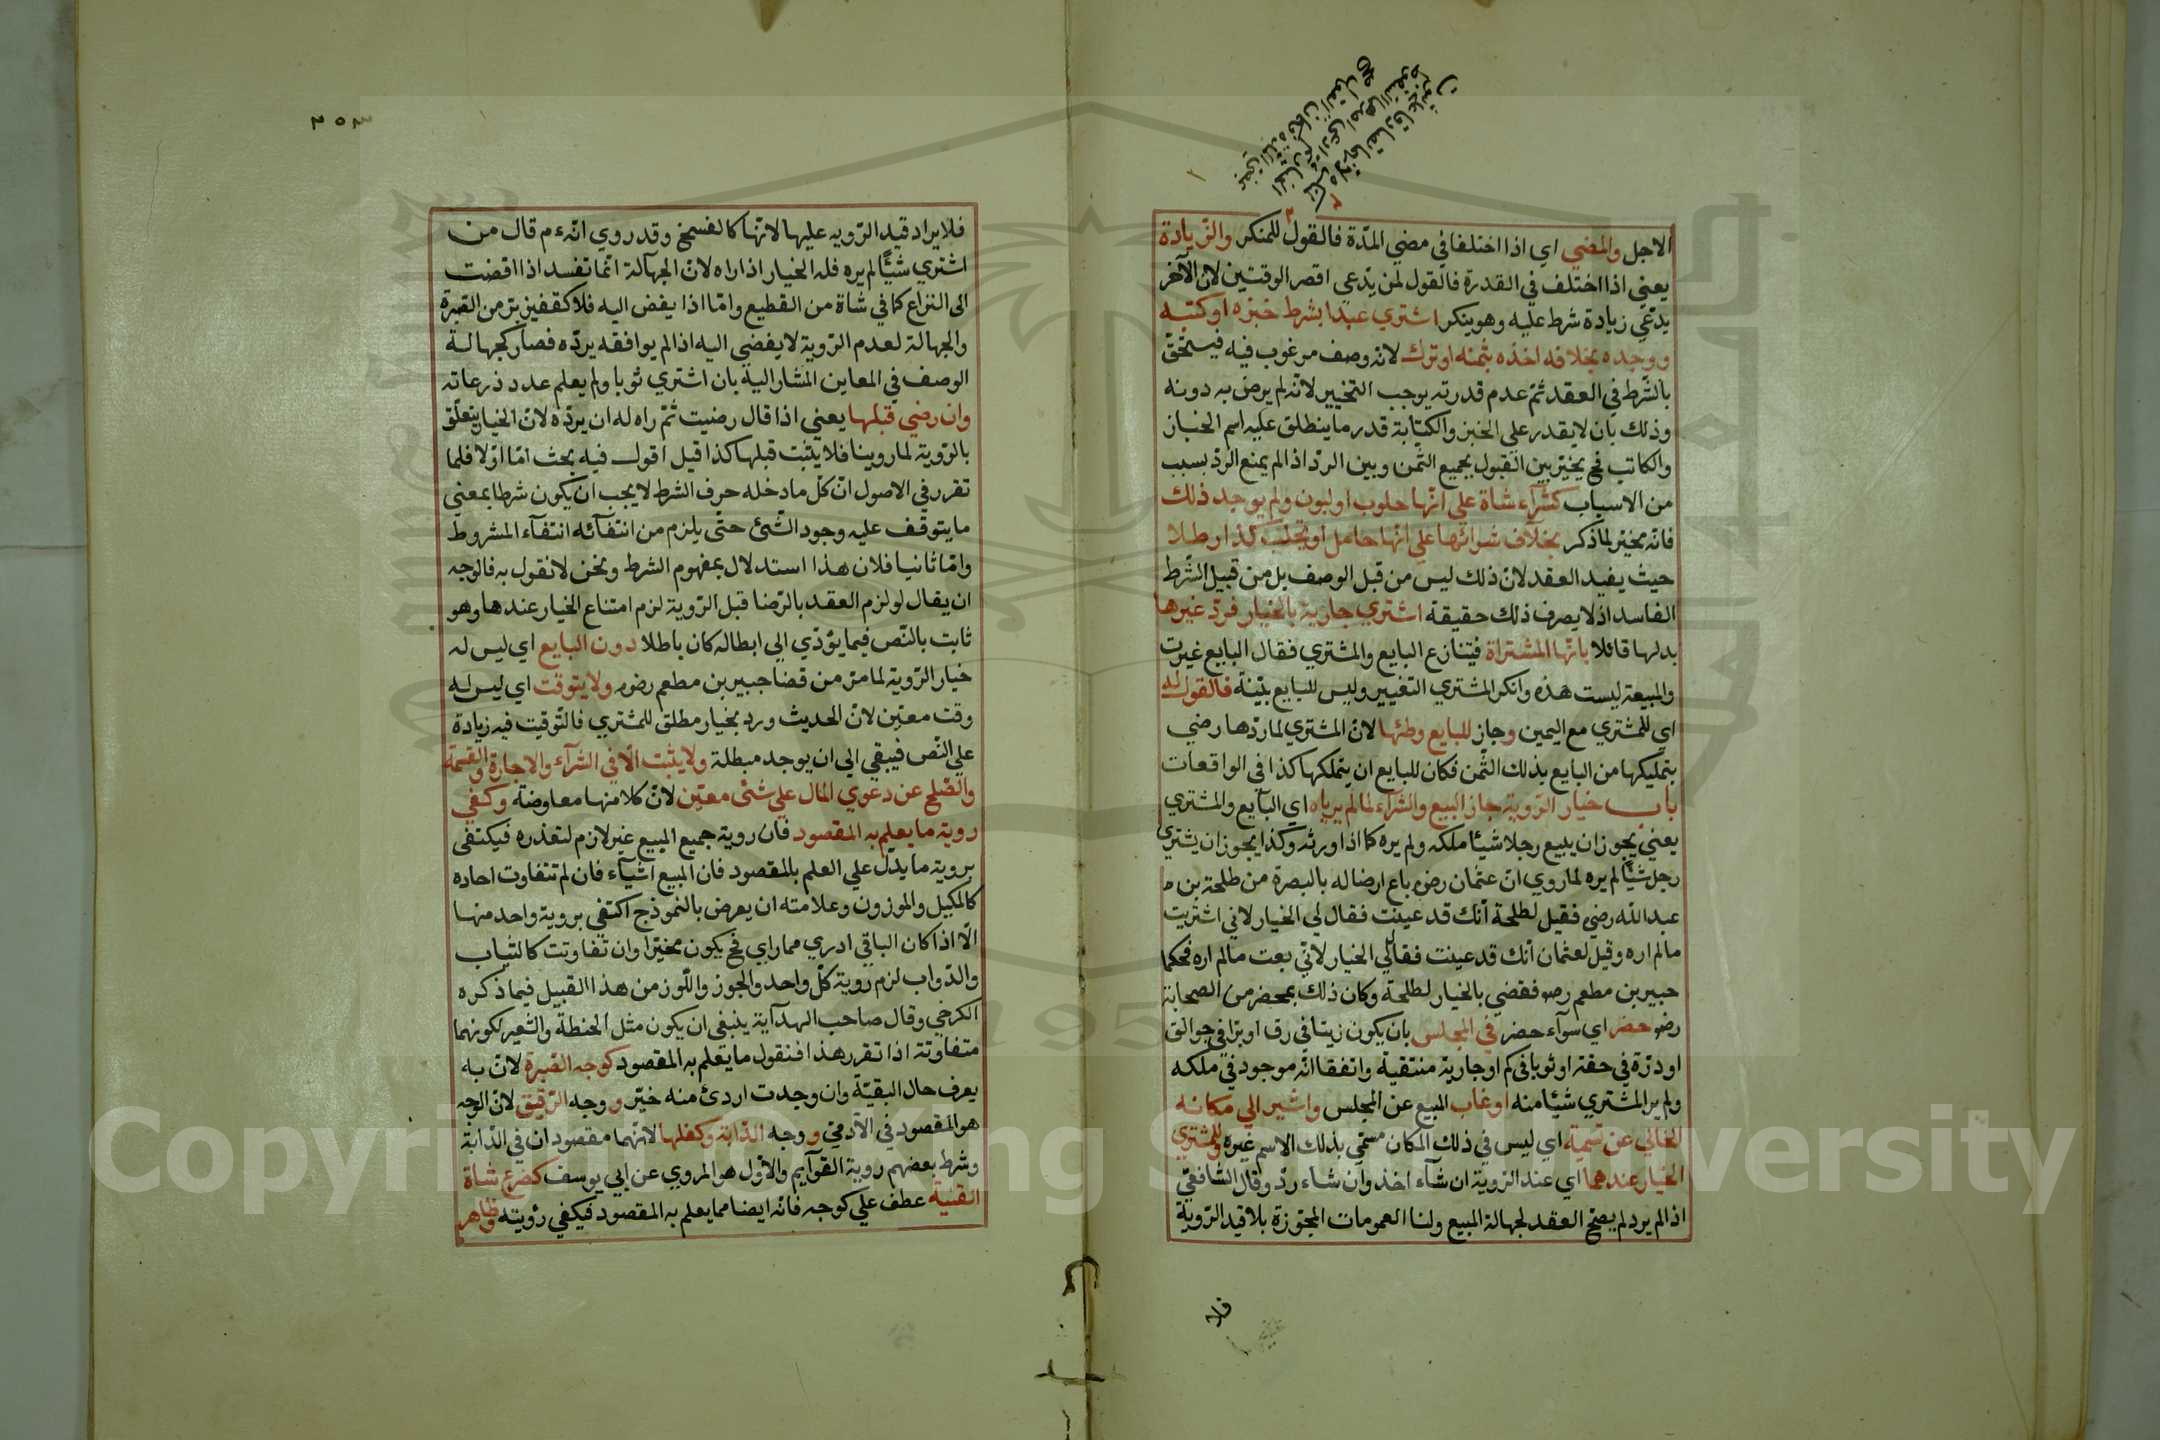 الاجل والمضي اي اذا اختلفا في مضي المدّة فالقول للمنكر والزيادة
يعني اذا اختلف في القدرة فالقول لمن يدّعي اقصر الوقتين لان الآخر
يدّعي زيادة شرط عليه وهو ينكر اشتري عبدا بشرط خبزه او كتبه
ووجده بخلافه اخذه بثمنه او ترك لانه وصف مرغوب فيه فيستحقّ
بالشّرط في العقد ثمّ عدم قدرته يوجب التخيير لانّه لم يرض به دونه
وذلك بان لا يقدر علي الخبز والكتابة قدر ما ينطلق عليه اسم الخباز
والكاتب فح يخيّر بين القبول بجميع الثّمن وبين الردّ اذا لم يمنع الردّ بسبب
من الاسباب كشرآء شاة علي انّها حلوب او لبون ولم يوجد ذلك
فانّه يخيّر لما ذكر بخلاف شرائها علي انّها حامل او تحلب كذا رطلا
حيث يفيد العقد لانّ ذلك ليس من قبل الوصف بل من قبيل الشّرط
الفاسد اذ لا يعرف ذلك حقيقة اشتري جارية بالخيار فردّ غيرها
بدلها قائلا بانّها المشتراة فيتنازع البايع والمشتري فقال البايع غيرت
والمبيعة ليست هذه وانكر المشتري التغيير وليس للبايع بيّنة فالقول له
اي للمشتري مع اليمين وجاز للبايع وطئها لانّ المشتري لما ردّها رضي
بتمليكها من البايع بذلك الثّمن فكان للبايع ان يتملكها كذا في الواقعات
باب خيار الرّوية جاز البيع والشّرآء لما لم يرياه اي البآيع والمشتري
يعني يجوز ان يبيع رجلا شيئا ملكه ولم يره كما اذا ورثه وكذا يجوز ان يشتري
رجل شيئًا لم يره لما روي انّ عثمان رضه باع ارضا له بالبصرة من طلحة بن
عبد اللّه رضي فقيل لطلحة انّك قد عينت فقال لي الخيار لاني اشتريت
ما لم اره وقيل لعثمان انّك قد عينت فقال لي الخيار لانّي بعت ما لم اره فحكما
جبير بن مطعم رضه فقضي بالخيار لطلحة وكان ذلك بمحضر من الصحابة
رضو حضر اي سوآء حضر في المجلس بان يكون زيتا في رق او برّا في جوالق
او درّة في حقة او ثوبا في كم او جارية منتقبة واتفقا انّه موجود في ملكه
ولم ير المشتري شيئا منه او غاب المبيع عن المجلس واشير الي مكانه
الخالي عن تسمية اي ليس في ذلك المكان مسمّي بذلك الاسم غيره وللمشتري
الخيار عندهما اي عند الرّوية ان شآء اخذ وان شاء ردّ وقال الشّافعيّ
اذا لم يرد لم يصحّ العقد لجهالة المبيع ولنا العمومات المجوّزة بلا قيد الرّوية
فلا
٢٥٣
فلا يراد قيد الرّويه عليها لانّها كالفسخ وقد روي انّه ءم قال من
اشتري شيئًا لم يره فله الخيار اذا راه لانّ الجهالة انّما تفسد اذا اقضت
الى النزاع كما في شاة من القطيع وامّا اذا يفض اليه فلا كقفيز برّ من الصّبرة
والجهالة لعدم الرّوية لا يفضي اليه اذا لم يوافقه يردّه فصار كجهالة
الوصف في المعاين المشار اليه بان اشتري ثوبا ولم يعلم عدد ذرعاته
وان رضي قبلها يعني اذا قال رضيت ثمّ راه له ان يردّه لانّ الخيار يتعلّق
بالرّوية لما روينا فلا يثبت قبلها كذا قيل اقول فيه بحث امّا اوّلا فلما
تقرر في الاصول انّ كلّ ما دخله حرف الشرط لا يجب ان يكون شرطا بمعني
ما يتوقف عليه وجود الشّئ حتّى يلزم من انتفآئه انتفآء المشروط
وامّا ثانيا فلان هذا استدلال بمفهوم الشرط ونحن لا نقول به فالوجه
ان يقال لو لزم العقد بالرّضا قبل الرّوية لزم امتناع الخيار عندها وهو
ثابت بالنّص فيما يؤدّي الي ابطاله كان باطلا دون البايع اي ليس له
خيار الرّوية لما مرّ من قضا جبير بن مطعم رضه ولا يتوقت اي ليس له
وقت معيّن لانّ الحديث ورد بخيار مطلق للمشتري فالتّوقيت فيه زيادة
علي النّص فيبقي الي ان يوجد مبطله ولا يثبت الّا في الشرآء والاجارة والقسمة
والصّلح عن دعوي المال علي شئ معيّن لانّ كلا منها معاوضة وكفي
روية ما يعلم به المقصود فان روية جميع المبيع غير لازم لتعذره فيكتفي
بروية ما يدلّ علي العلم بالمقصود فان المبيع اشيآء فان لم تتفاوت احاده
كالمكيل والموزون وعلامته ان يعرض بالنّموذج اكتفي بروية واحد منها
الّا اذا كان الباقي ادري مما راي فح يكون مخيّرا وان تفاوتت كالثياب
والدّواب لزم روية كلّ واحد والجوز واللّوز من هذا القبيل فيما ذكره
الكرخي وقال صاحب الهدآية ينبغي ان يكون مثل الحنطة والشّعير لكونهما
متفاوتة اذا تقرر هذا فنقول ما يعلم به المقصود كوجه الصّبرة لانّ به
يعرف حال البقيّة وان وجدت اردئ منه خيّر و وجه الرّقيق لانّ الوجه
هو المقصود في الآدميّ و وجه الدّابّة وكفلها لانّهما مقصودان في الدّابّة
وشرط بعضهم روية القوآيم والاوّل هو المروي عن ابي يوسف كضرع شاة
القنية عطف علي كوجه فانّه ايضا مما يعلم به المقصود فيكفي رؤيته وظاهر
Copyright © King Saud University
1957